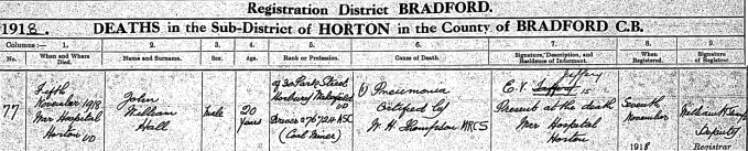 Registration District BRADFORD.
1918. DEATHS in the Sub-District of HORTON in the County of BRADFORD C.B.
Columns:— 1. 2. 3. 4. 5. 6. 7. 8. 9.
No. When and Where Died. Name and Surname. Sex. Age. Rank or Profession. Cause of Death. Signature, Description, and Residence of Informant. When Registered. Signature of Registrar
77
Fifth
November 1918
War Hospital
Horton UD
John
William
Hall
Male
20
years
of 30 Park Street
Horbury Wakefield
UD
Driver ASC
(Coal Miner)
(1) Pneumonia
Certified by
W. H. Thompson MRCS
Jeffery
C. V.
Present at the death
War Hospital
Horton
Seventh
November
1918
Deputy
Registrar